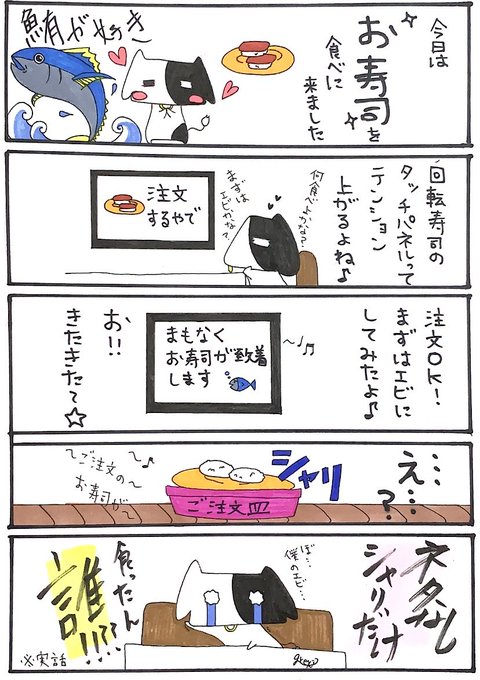 今日は
お寿司を
食べに
来ました
鮪が好き
回転寿司の
タッチパネルって
テンション
上がるよね♪
何食べよかな?
まずは
エビかな?
注文
するやで
注文OK!
まずはエビに
してみたよ♪
まもなく
お寿司が到着
します
お!!
きたきたて☆
え…
…?
シャリ
〜ご注文の〜
お寿司が〜
ご注文皿
ネタなし
シャリだけ
ぼ…
僕のエビ…
食ったん
誰!!??
※実話